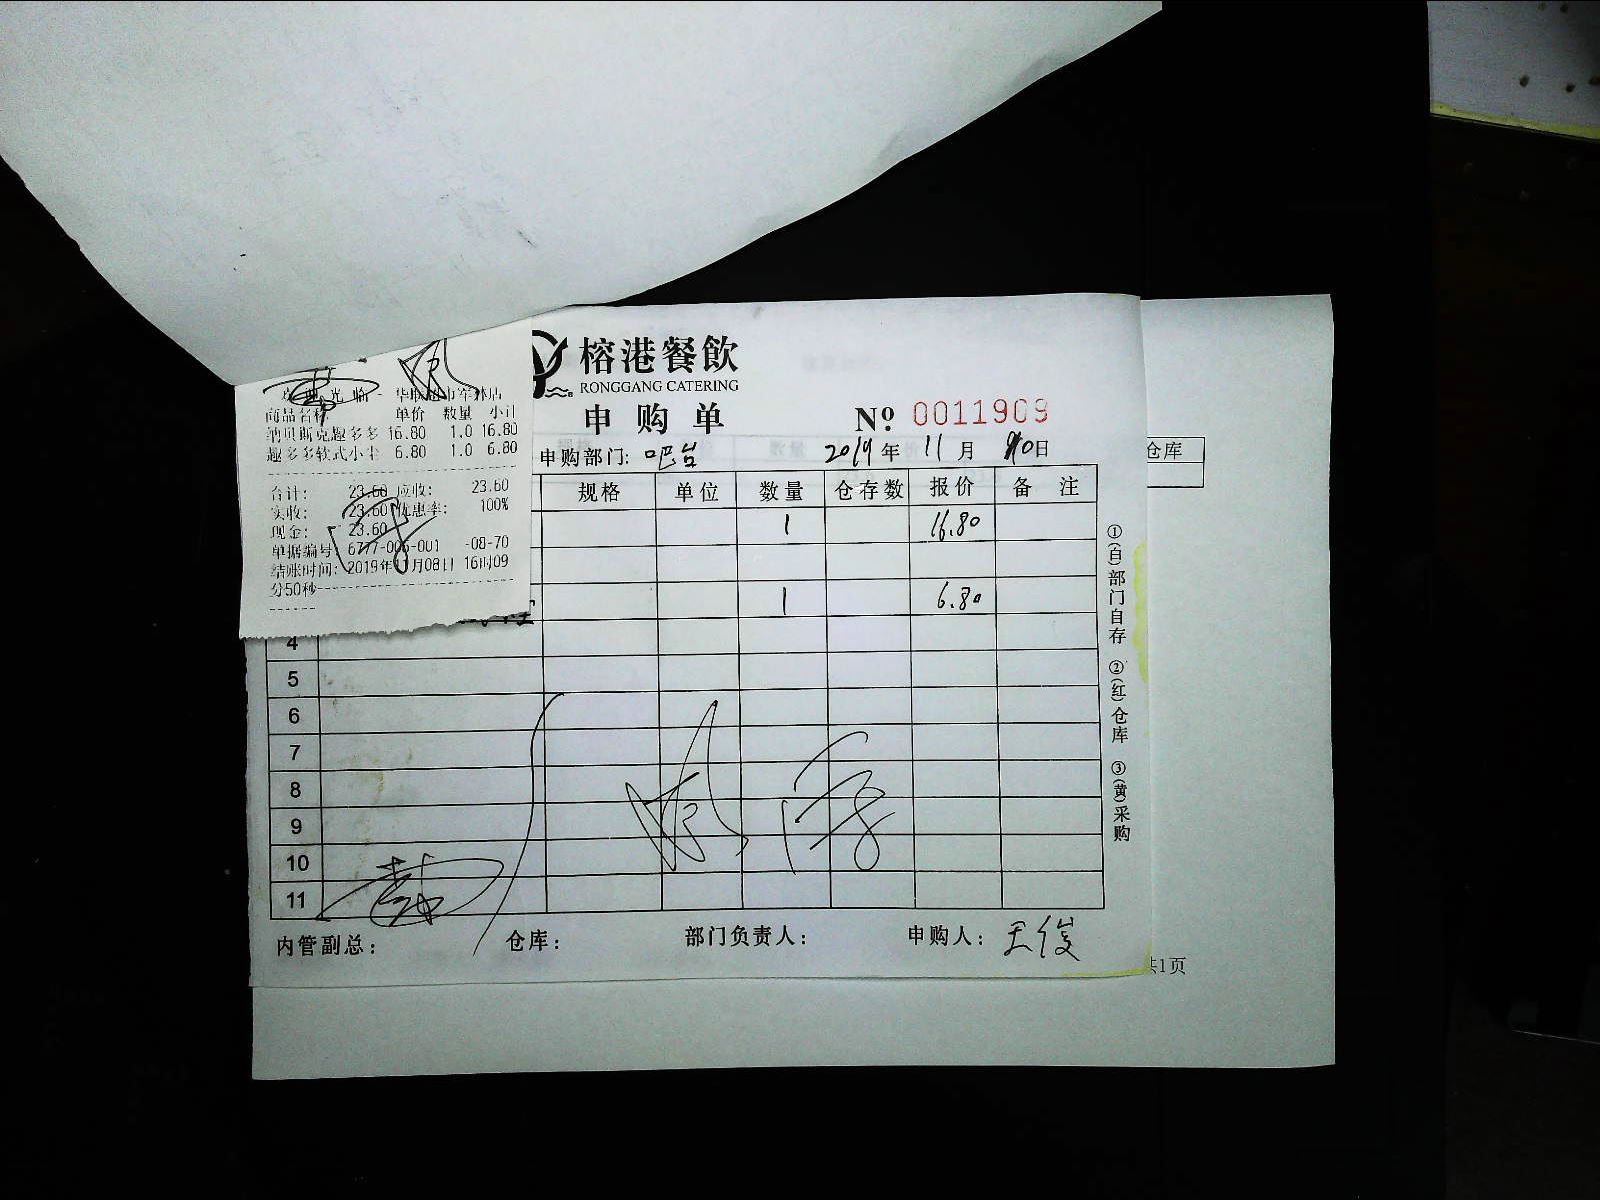 榕港餐飲
RONGGANG CATERING
申购单
№ 0011909
申购部门: 吧台 2019年 11月 10日
规格 单位 数量 仓存数 报价 备注
1 16.80
1 6.80
4
5
6
7
8
9
10
11
内管副总: 仓库: 部门负责人: 申购人: 王俊
①(白)部门自存 ②(红)仓库 ③(黄)采购
光临
商品名称 单价 数量 小计
纳贝斯克趣多多 16.80 1.0 16.80
趣多多软式小 6.80 1.0 6.80
合计: 23.60 应收: 23.60
实收: 23.60 优惠率: 100%
现金: 23.60
单据编号: -08-70
结账时间: 2019年 月08日 16时09
分50秒
仓库
共1页